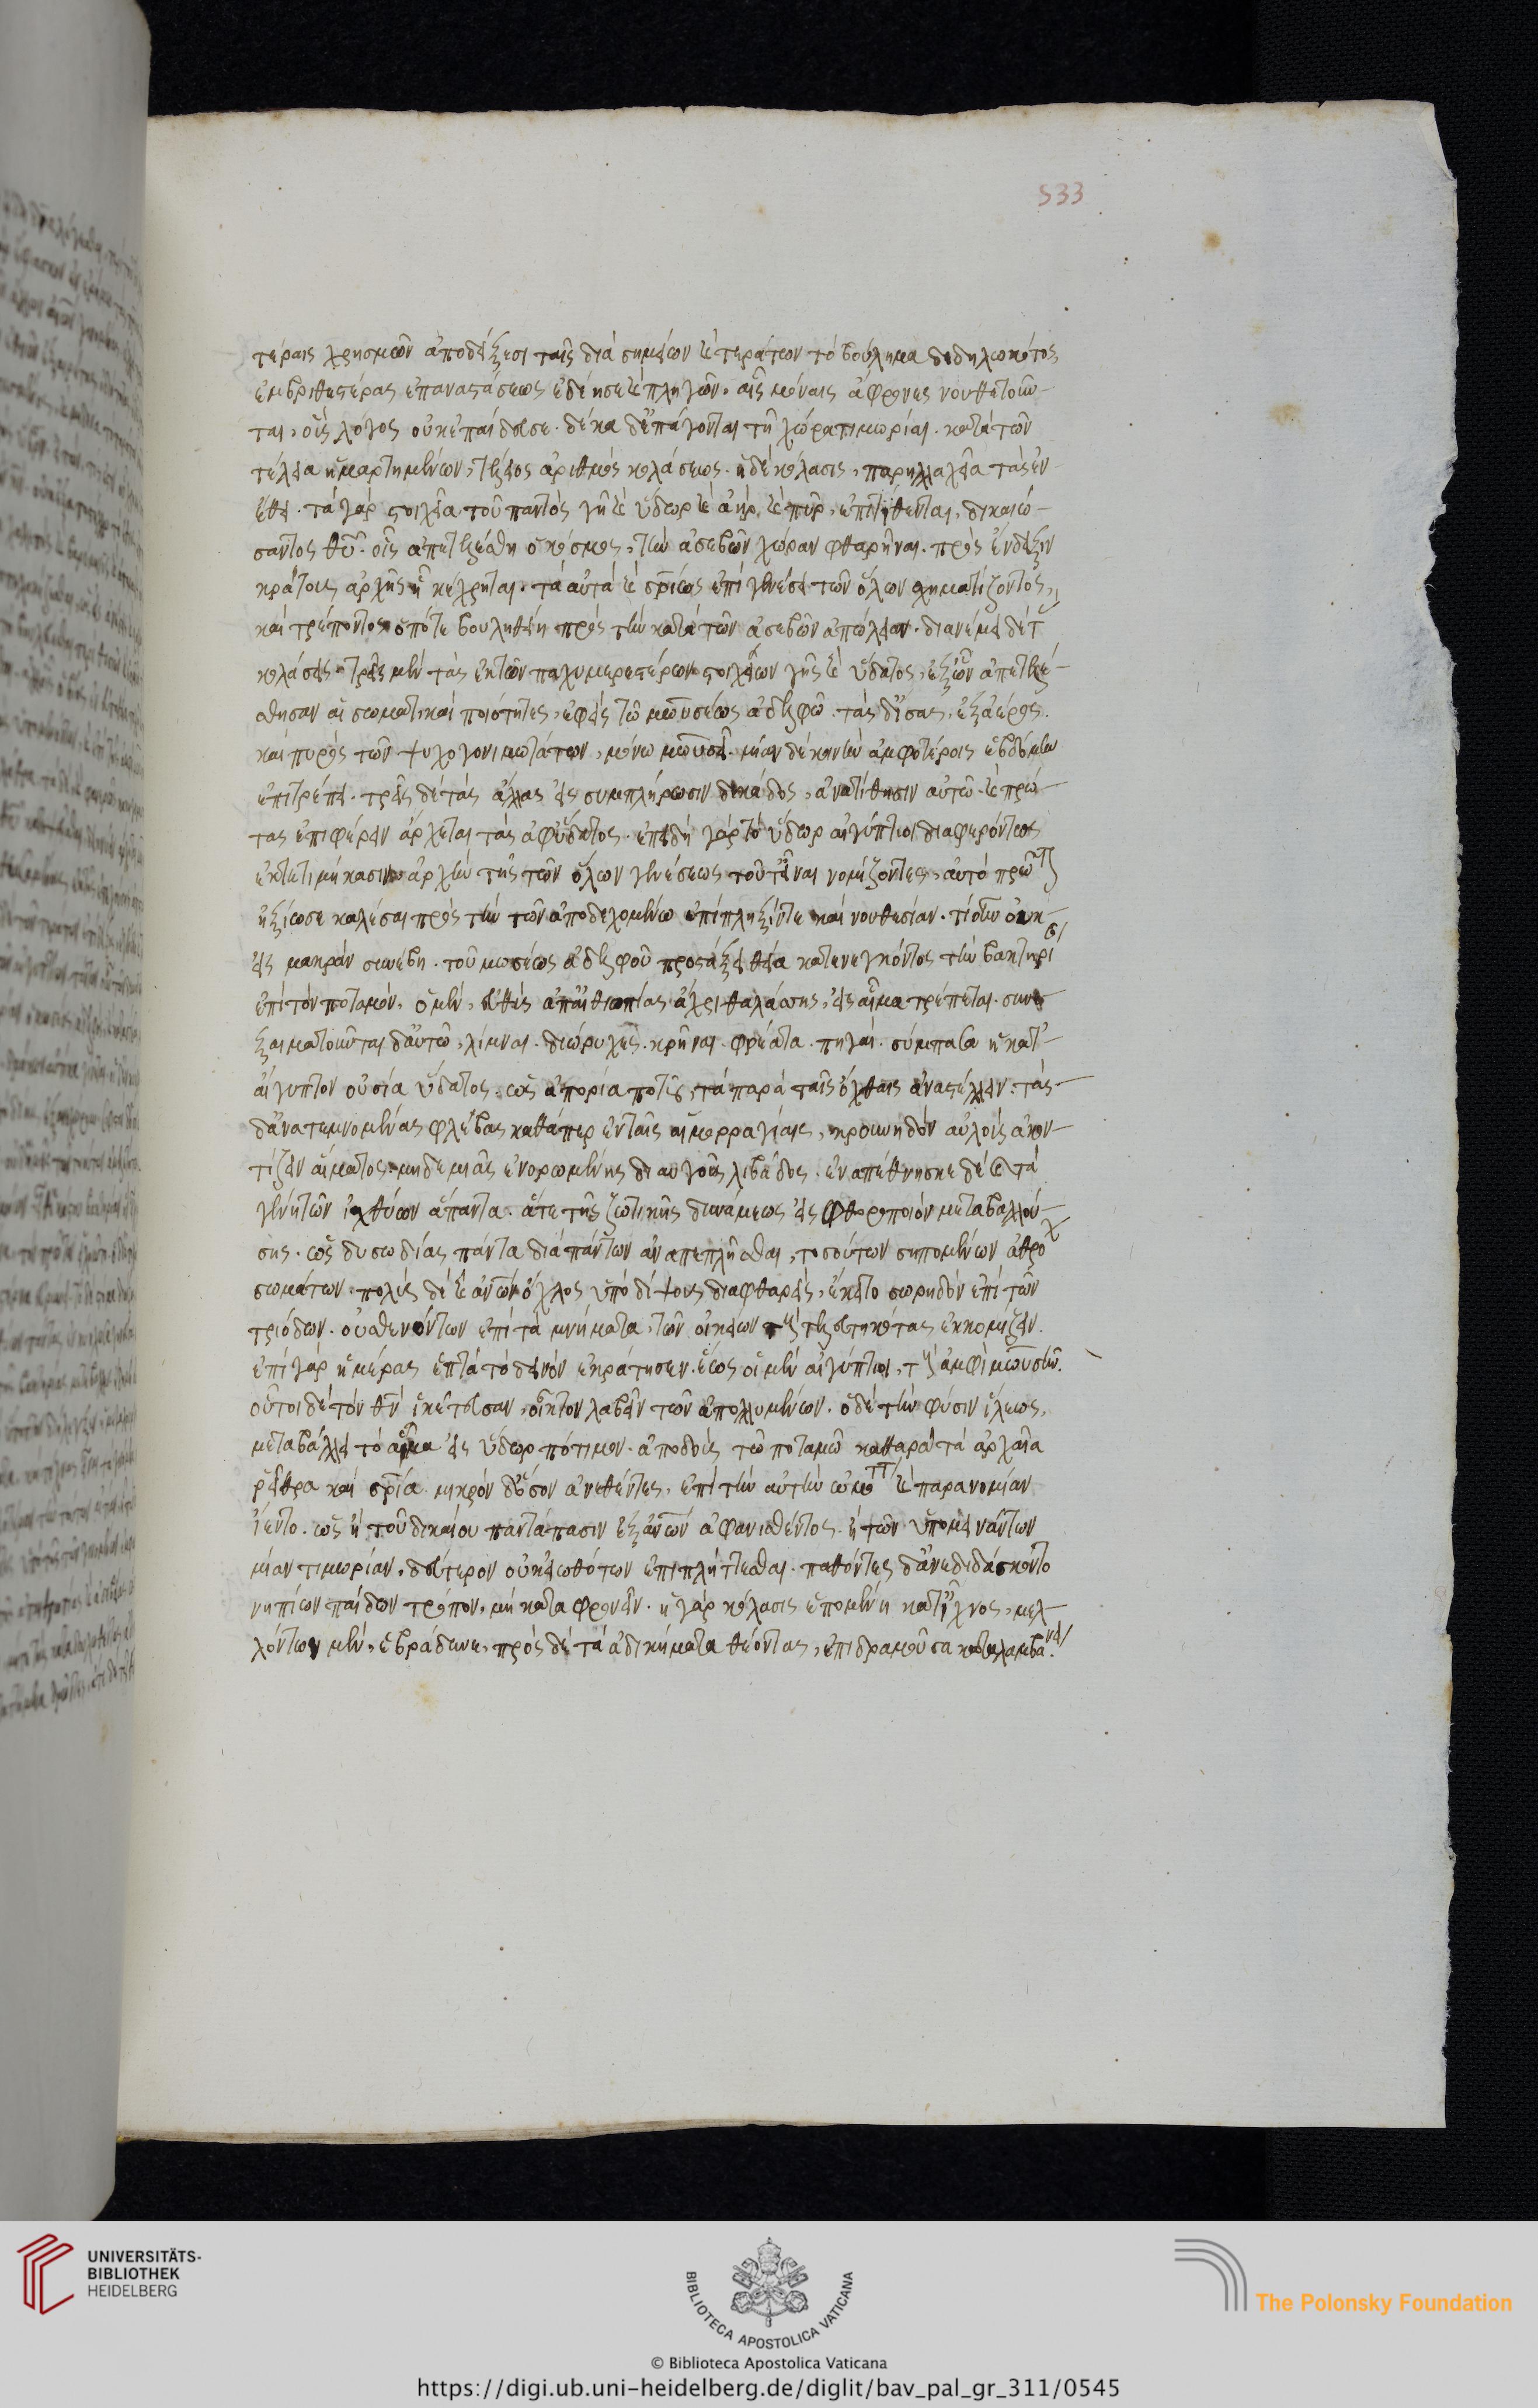 533
τέραις χρησμῶν ἀποδείξεσι ταῖς διὰ σημείων καὶ τεράτων τὸ βούλημα δεδηλωκότος
ἐμβριθεστέρας ἐπαναστάσεως ἐδέησε καὶ πληγῶν. αἷς μόναις ἄφρονες νουθετοῦν-
ται, οὓς λόγος οὐκ ἐπαίδευσε. δέκα δ' ἐπάγονται τῇ χώρᾳ τιμωρίαι. κατὰ τῶν
τέλεια ἡμαρτημένων, τέλειος ἀριθμὸς κολάσεως. ἡ δὲ κόλασις, παρηλλαχεῖα τὰς ἐν
ἔθει. τὰ γὰρ στοιχεῖα τοῦ παντὸς γῆ καὶ ὕδωρ καὶ ἀὴρ καὶ πῦρ, ἐπιτίθενται, δικαιώ-
σαντος θεοῦ. οἷς ἀπετελέσθη ὁ κόσμος, τὴν ἀσεβῶν χώραν φθαρῆναι. πρὸς ἔνδειξιν
κράτους ἀρχῆς ᾗ κέχρηται. τὰ αὐτὰ καὶ σωτηρίως ἐπὶ γενέσει τῶν ὅλων σχηματίζοντος,
καὶ τρέποντος ὁπότε βουληθείη πρὸς τὴν κατὰ τῶν ἀσεβῶν ἀπώλειαν. διανέμει δὲ τ
κολάσεις. τρεῖς μὲν τὰς ἐκ τῶν παχυμερεστέρων στοιχείων γῆς καὶ ὕδατος, ἐξ ὧν ἀπετελέ-
σθησαν αἱ σωματικαὶ ποιότητες, ἐφεὶς τῷ μωυσέως ἀδελφῷ. τὰς δ' ἴσας, ἐξ ἀέρος.
καὶ πυρὸς τῶν ψυχογονιμωτάτων, μόνῳ μωυσεῖ. μίαν δὲ κοινὴν ἀμφοτέροις ἑβδόμην
ἐπιτρέπει. τρεῖς δὲ τὰς ἄλλας εἰς συμπλήρωσιν δεκάδος, ἀνατίθησιν αὑτῷ. καὶ πρώ-
τας ἐπιφέρειν ἄρχεται τὰς ἀφ' ὕδατος. ἐπειδὴ γὰρ τὸ ὕδωρ αἰγύπτιοι διαφερόντως
ἐκτετιμήκασιν ἀρχὴν τῆς τῶν ὅλων γενέσεως τοῦτ' εἶναι νομίζοντες, αὐτὸ πρῶτ
ἠξίωσε καλέσαι πρὸς τὴν τῶν ἀποδεχομένων ἐπίπληξίν τε καὶ νουθεσίαν. τί οὖν οὐκ
εἰς μακρὰν συνέβη. τοῦ μωσέως ἀδελφοῦ προστάξει θείᾳ κατενεγκόντος τὴν βακτηρί
ἐπὶ τὸν ποταμόν, ὁ μὲν, εὐθὺς ἀπ' αἰθιοπίας ἄχρι θαλάσσης, εἰς αἷμα τρέπεται. συνε
ξαιματοῦνται δ' αὐτῷ, λίμναι. διώρυχες. κρῆναι. φρέατα. πηγαί. σύμπασα ἡ κατ'
αἴγυπτον οὐσία ὕδατος. ὡς ἀπορίᾳ ποτοῦ, τὰ παρὰ ταῖς ὄχθαις ἀναστέλλειν. τὰς
δ' ἀνατεμνομένας φλέβας καθάπερ ἐν ταῖς αἱμορραγίαις, κρουνηδὸν αὐλοὺς ἀκον-
τίζειν αἵματος μηδεμιᾶς ἐνορωμένης διαυγοῦς λιβάδος. ἐναπέθνησκε δὲ καὶ τὰ
γένη τῶν ἰχθύων ἅπαντα. ἅτε τῆς ζωτικῆς δυνάμεως εἰς φθοροποιὸν μεταβαλλού-
σης. ὡς δυσωδίας πάντα διὰ πάντων ἀναπεπλῆσθαι, τοσούτων σηπομένων ἀθρο
σωμάτων. πολὺς δὲ καὶ ἀνων ὄχλος ὑπὸ δίψους διαφθαρεὶς, ἔκειτο σωρηδὸν ἐπὶ τῶν
τριόδων. οὐ σθενόντων ἐπὶ τὰ μνήματα, τῶν οἰκείων τοὺς τετελευτηκότας ἐκκομίζειν.
ἐπὶ γὰρ ἡμέρας ἑπτὰ τὸ δεινὸν ἐκράτησεν. ἕως οἱ μὲν αἰγύπτιοι, τοὺς ἀμφὶ μωυσῆν.
οὗτοι δὲ τὸν θν ἱκέτευσαν, οἶκτον λαβεῖν τῶν ἀπολλυμένων. ὁ δὲ τὴν φύσιν ἵλεως,
μεταβάλλει τὸ αἷμα εἰς ὕδωρ πότιμον. ἀποδοὺς τῷ ποταμῷ καθαρὰ τὰ ἀρχαῖα
ῥεῖθρα καὶ σωτήρια. μικρὸν δ' ὅσον ἀνεθέντες, ἐπὶ τὴν αὐτὴν ὠμότητα καὶ παρανομίαν
ἵεντο. ὡς ἢ τοῦ δικαίου παντάπασιν ἐξ ἀνων ἀφανισθέντος. ἢ τῶν ὑπομεινάντων
μίαν τιμωρίαν, δεύτερον οὐκ εἰωθότων ἐπιπλήττεσθαι. παθόντες δ' ἀνεδιδάσκοντο
νηπίων παίδων τρόπον, μὴ καταφρονεῖν. ἡ γὰρ κόλασις ἑπομένη κατ' ἴχνος, μελ-
λόντων μὲν, ἐβράδυνε, πρὸς δὲ τὰ ἀδικήματα θέοντας, ἐπιδραμοῦσα κατελάμβανε.
UNIVERSITÄTS-
BIBLIOTHEK
HEIDELBERG
BIBLIOTECA APOSTOLICA VATICANA
The Polonsky Foundation
© Biblioteca Apostolica Vaticana
https://digi.ub.uni-heidelberg.de/diglit/bav_pal_gr_311/0545